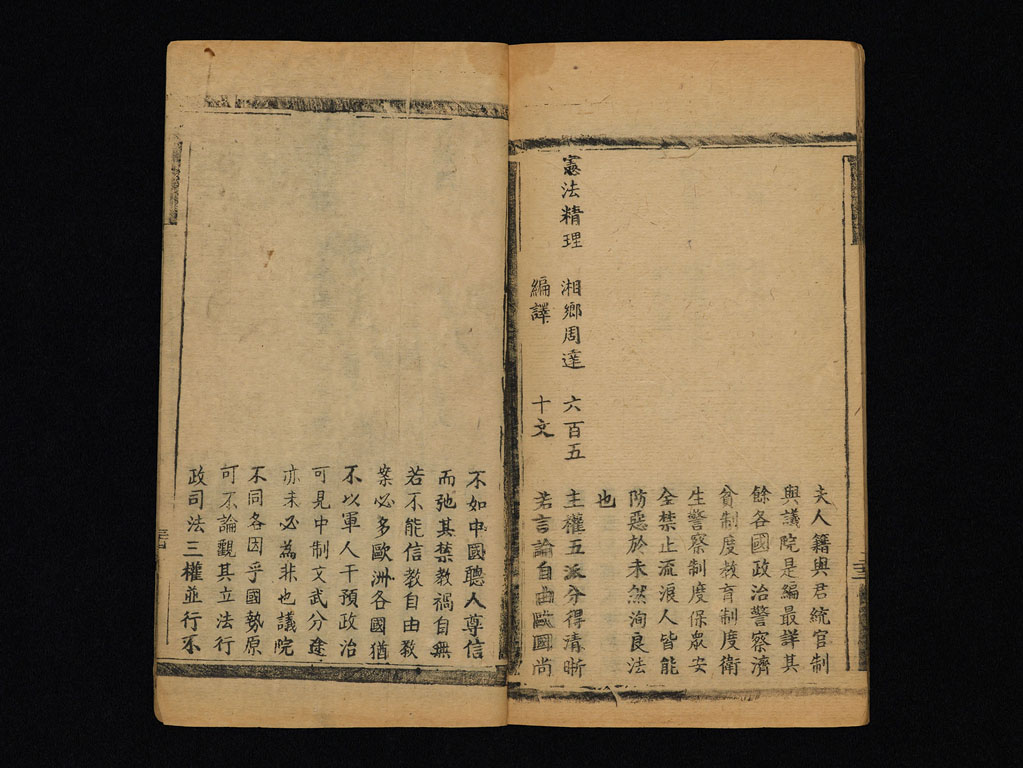 夫人籍與君統官制
與議院是編最詳其
餘各國政治警察濟
貧制度教育制度衛
生警察制度保眾安
全禁止流浪人皆能
防惡於未然洵良法
也
憲法精理 湘鄉周達 六百五 主權五派分得清晰
編譯 十文 若言論自由歐國尚
不如中國聽人尊信
而弛其禁教禍自無
若不能信教自由教
案必多歐洲各國猶
不以軍人干預政治
可見中制文武分途
亦未必為非也議院
不同各因乎國勢原
可不論觀其立法行
政司法三權並行不